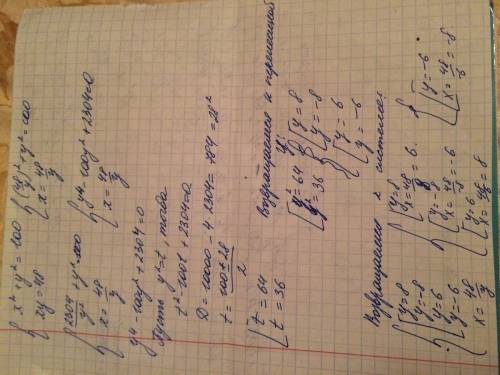 { x² + y² = 100
{ xy = 48
{ (48/y)² + y² = 100
{ x = 48/y
{ 2304/y² + y² = 100
{ x = 48/y
{ y⁴ - 100y² + 2304 = 0
{ x = 48/y
y⁴ - 100y² + 2304 = 0
Пусть y² = t, тогда
t² - 100t + 2304 = 0
D = 10000 - 4·2304 = 784 = 28²
t = (100 ± 28)/2
[ t = 64
[ t = 36
Возвращаемся к переменной
y:
[ y² = 64
[ y² = 36
[ y = 8
[ y = -8
[ y = 6
[ y = -6
Возвращаемся к системе:
{ [ y = 8
[ y = -8
[ y = 6
[ y = -6
x = 48/y
{ y = 8
{ x = 48/8 = 6
{ y = -8
{ x = 48/-8 = -6
{ y = 6
{ x = 48/6 = 8
{ y = -6
{ x = 48/-6 = -8